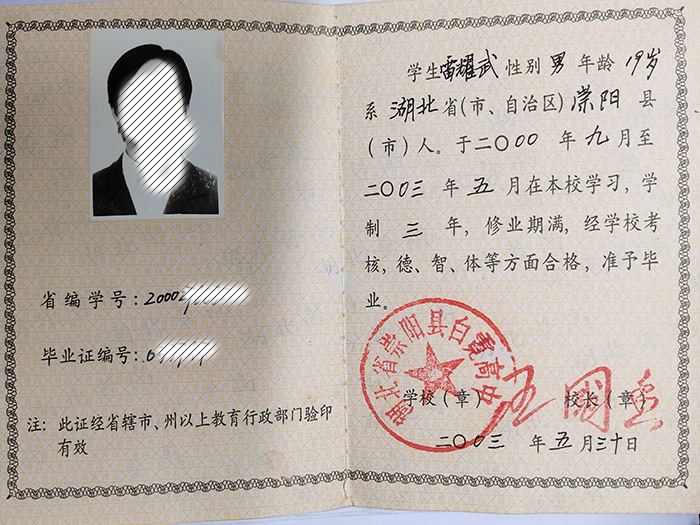 省编学号：20002
毕业证编号：0
注：此证经省辖市、州以上教育行政部门验印
有效
学生雷耀武性别男年龄19岁
系湖北省(市、自治区)崇阳县
（市）人。于二〇〇〇年九月至
二〇〇三年五月在本校学习，学
制三年，修业期满，经学校考
核，德、智、体等方面合格，准予毕
业。
湖北省崇阳县白霓高中
学校（章）
校长（章）
二〇〇三年五月三十日